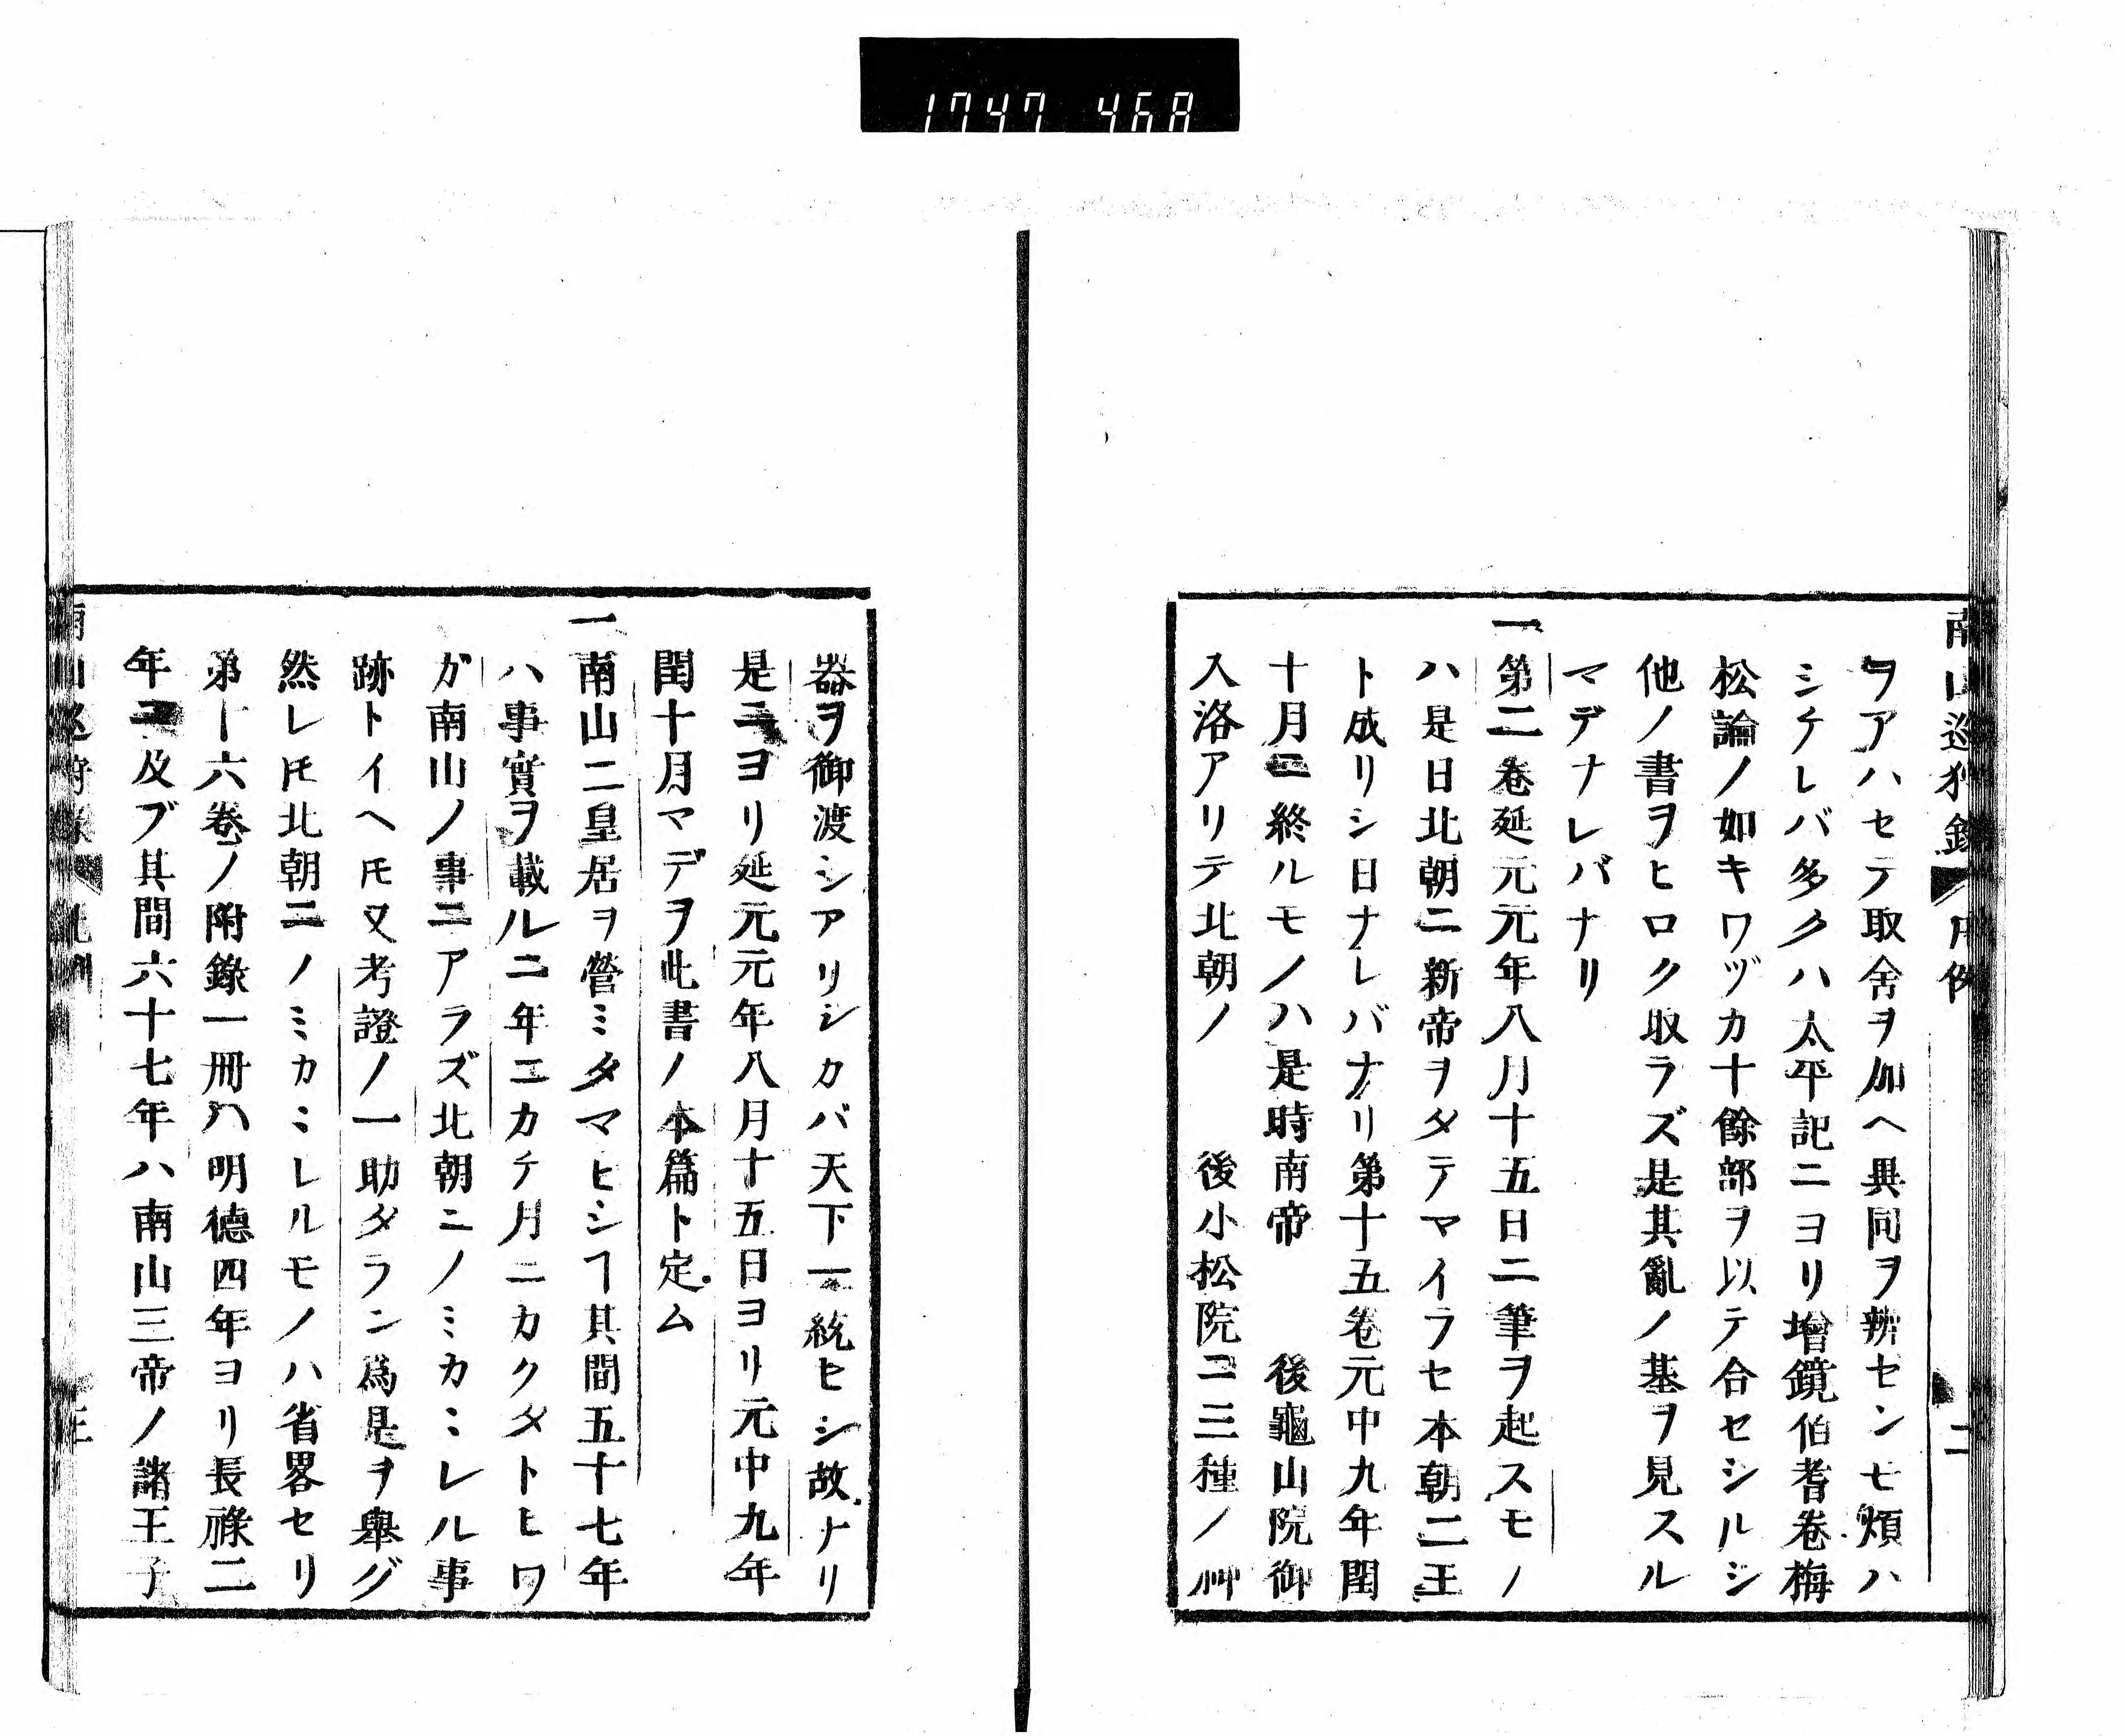 1747 468
南山巡狩錄 凡例 二
ヲアハセテ取舍ヲ加ヘ異同ヲ辨センモ煩ハ
シケレバ多クハ太平記ニヨリ增鏡伯耆卷梅
松論ノ如キワヅカ十餘部ヲ以テ合セシルシ
他ノ書ヲヒロク取ラズ是其亂ノ基ヲ見スル
マデナレバナリ
一第二卷延元元年八月十五日ニ筆ヲ起スモノ
ハ是日北朝ニ新帝ヲタテマイラセ本朝二王
ト成リシ日ナレバナリ第十五卷元中九年閏
十月ニ終ルモノハ是時南帝 後龜山院御
入洛アリテ北朝ノ 後小松院ニ三種ノ神
器ヲ御渡シアリシカバ天下一統ヒシ故ナリ
是ニヨリ延元元年八月十五日ヨリ元中九年
閏十月マデヲ此書ノ本篇ト定ム
一南山ニ皇居ヲ營ミタマヒシヿ其間五十七年
ハ事實ヲ載ルニ年ニカケ月ニカクタトヒワ
ガ南山ノ事ニアラズ北朝ニノミカミレル事
跡トイヘ𪜈又考證ノ一助タラン爲是ヲ舉グ
然レ𪜈北朝ニノミカミレルモノハ省畧セリ
第十六卷ノ附錄一冊ハ明德四年ヨリ長祿二
年ニ及ブ其間六十七年ハ南山三帝ノ諸王子